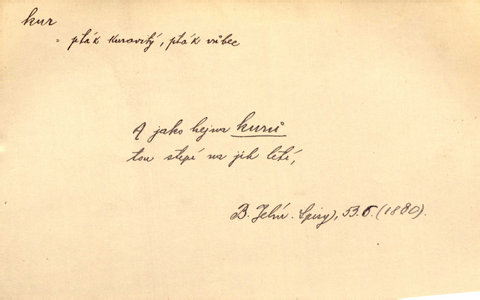 kur
= pták kurovitý, pták vůbec
A jako hejna kurů
tou stepí na jih letí,
B. Jelín. Spisy, 53.5. (1880).